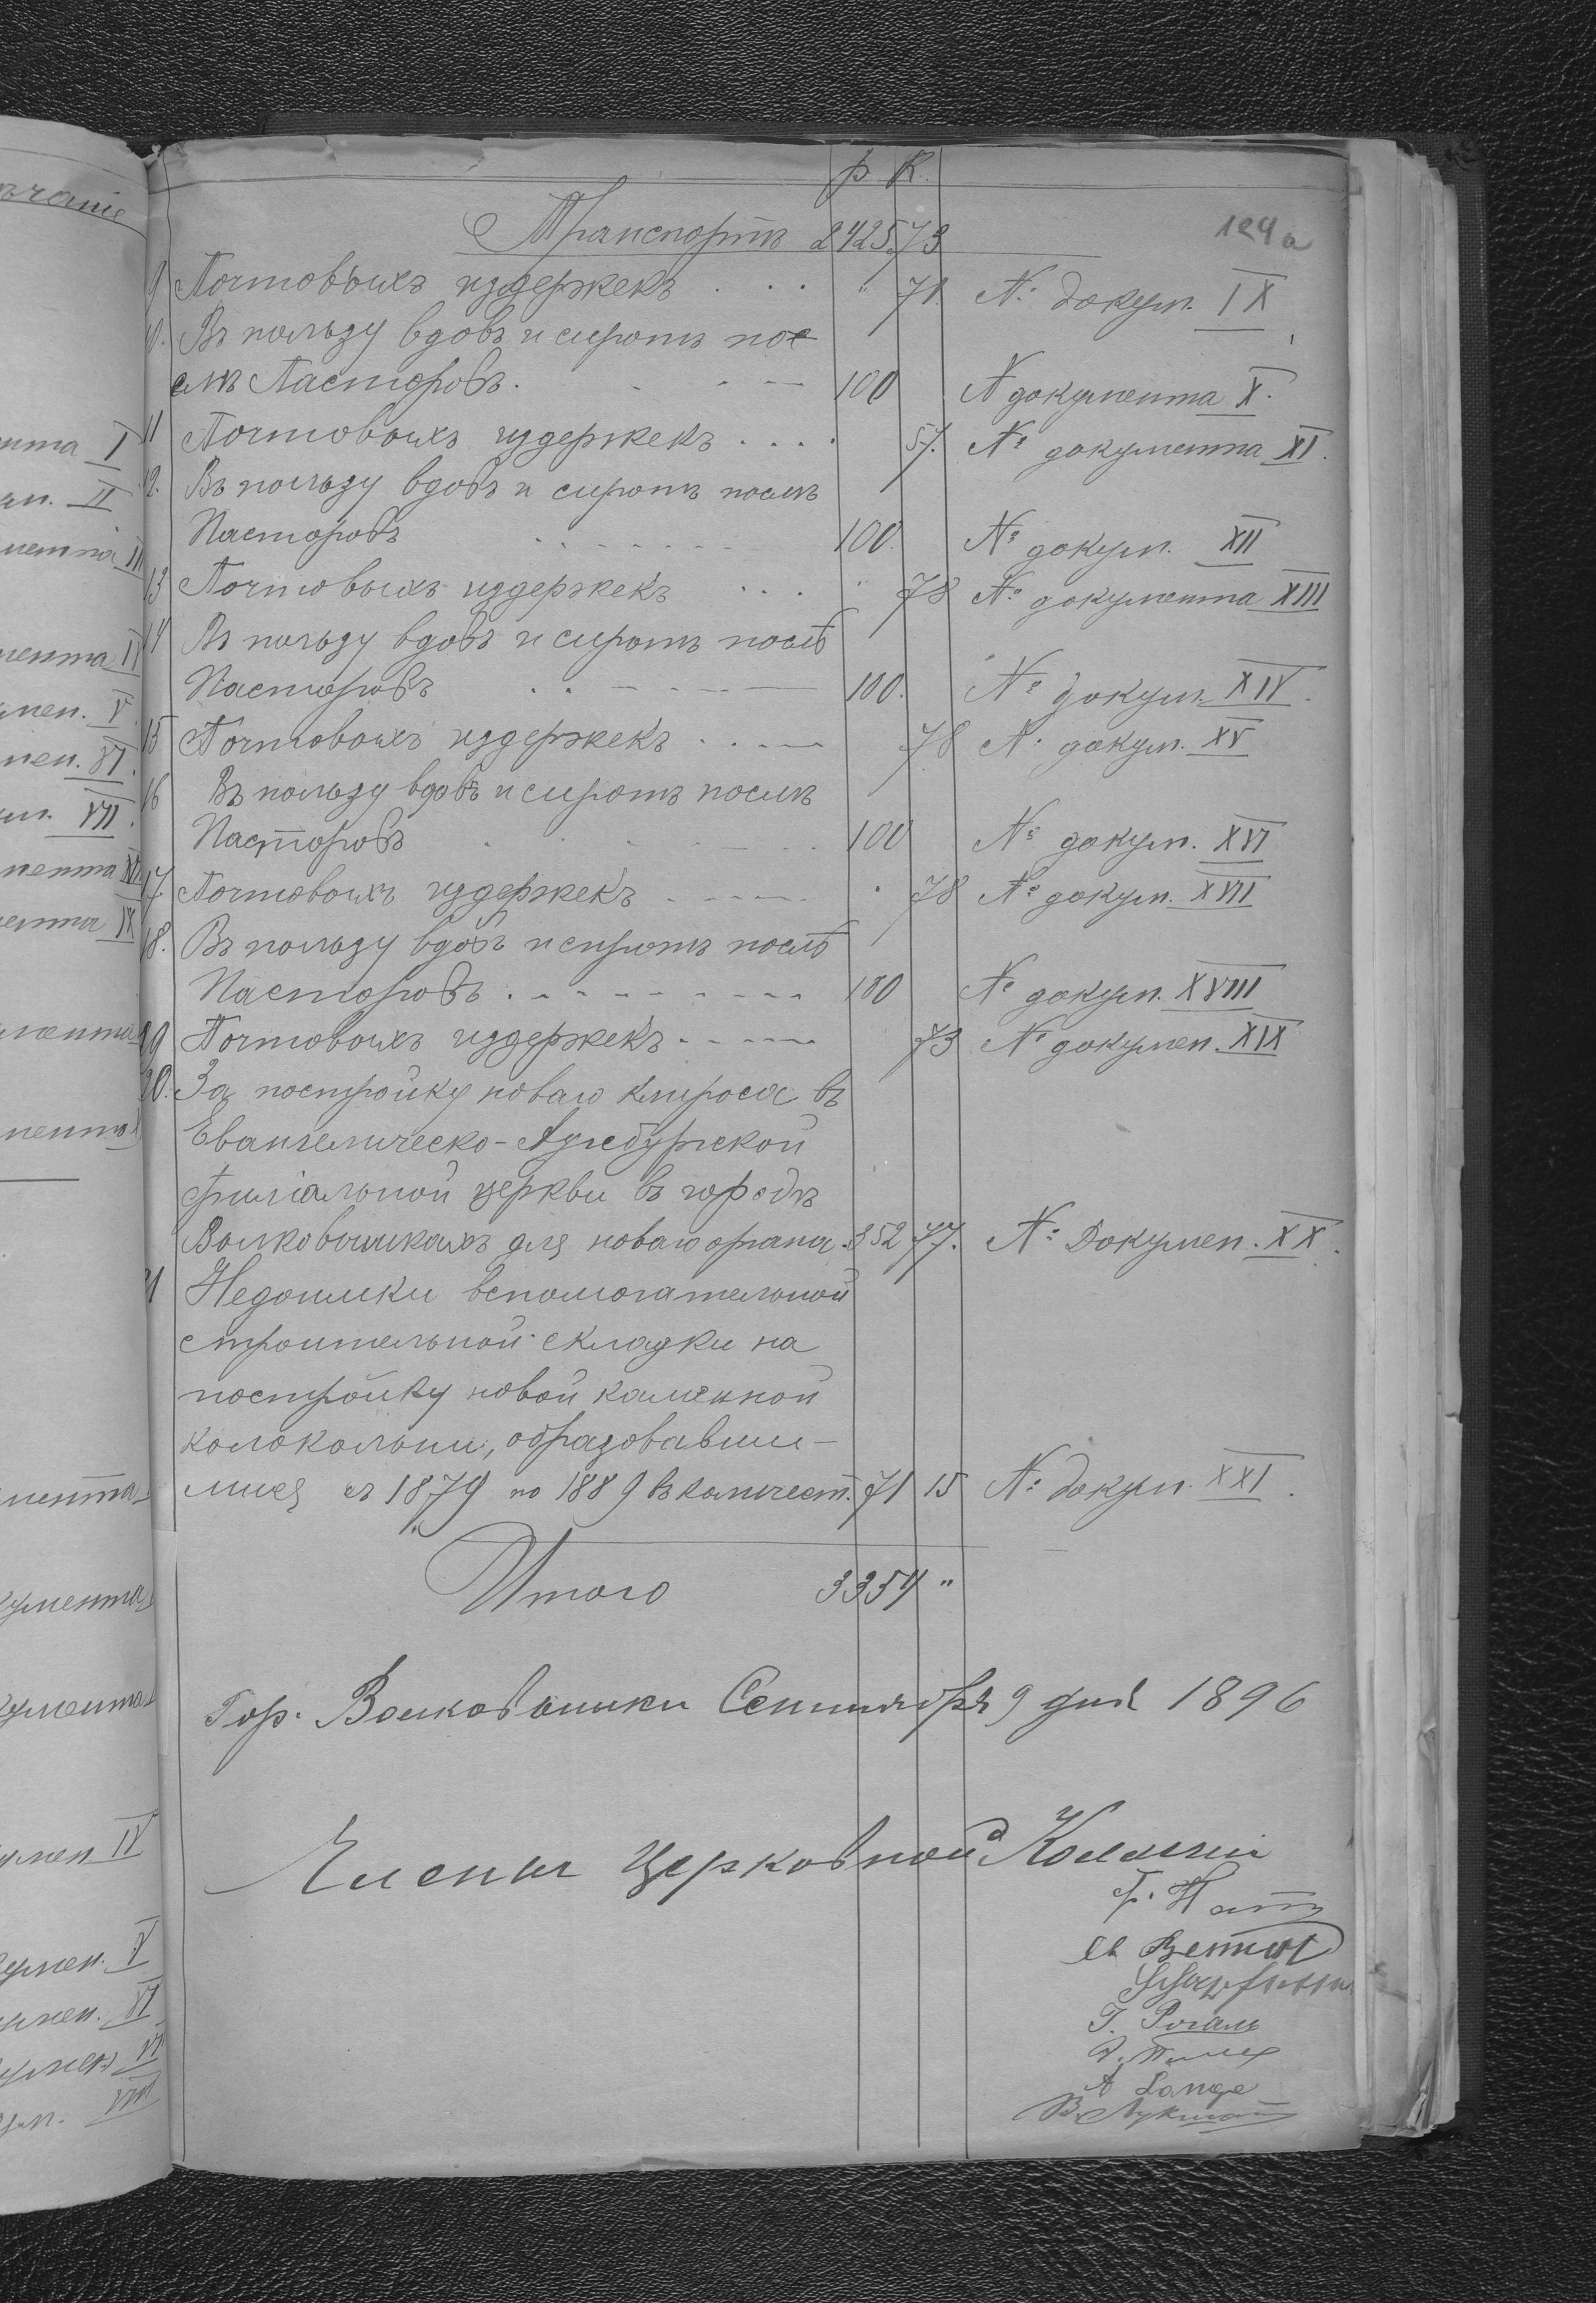 р. к.
124a
Транспортъ 2425 73
9 Почтовыхъ издержекъ . . . " 71 №: докум. IX
10. Въ пользу вдовъ и сиротъ пос
слѣ Пасторовъ. 100 № документа X.
11 Почтовыхъ издержекъ . . . . 57. № документа XI.
12. Въ пользу вдовъ и сиротъ послѣ
Пасторовъ 100. № докум. XII
13 Почтовыхъ издержекъ . . . " 78 №: документа XIII
14 Въ пользу вдовъ и сиротъ послѣ
Пасторовъ 100. № докум. XIV.
15 Почтовыхъ издержекъ . . 78 №. докум. XV
16 Въ пользу вдовъ и сиротъ послѣ
Пасторовъ 100 № докум. XVI
17 Почтовыхъ издержекъ 78 № докум. XVII
18. Въ пользу вдовъ и сиротъ послѣ
Пасторовъ 100 № докум. XVIII
19 Почтовыхъ издержекъ 73 № докумен. XIX
20. За постройку новаго клироса въ
Евангелическо-Аугсбургской
филіальной церкви въ городѣ
Волковышкахъ для новаго органа 352 77. №: Докумен. XX.
21 Недоимки вспомогательной
строительной складки на
постройку новой каменной
колокольни, образовавши-
мися съ 1879 по 1889 въ количест. 71 15 №: докум. XXI.
Итого 3354 "
Гор. Волковышки Сентября 9 дня 1896
Члены Церковной Коллегіи
Г. Рогаль
A Lange